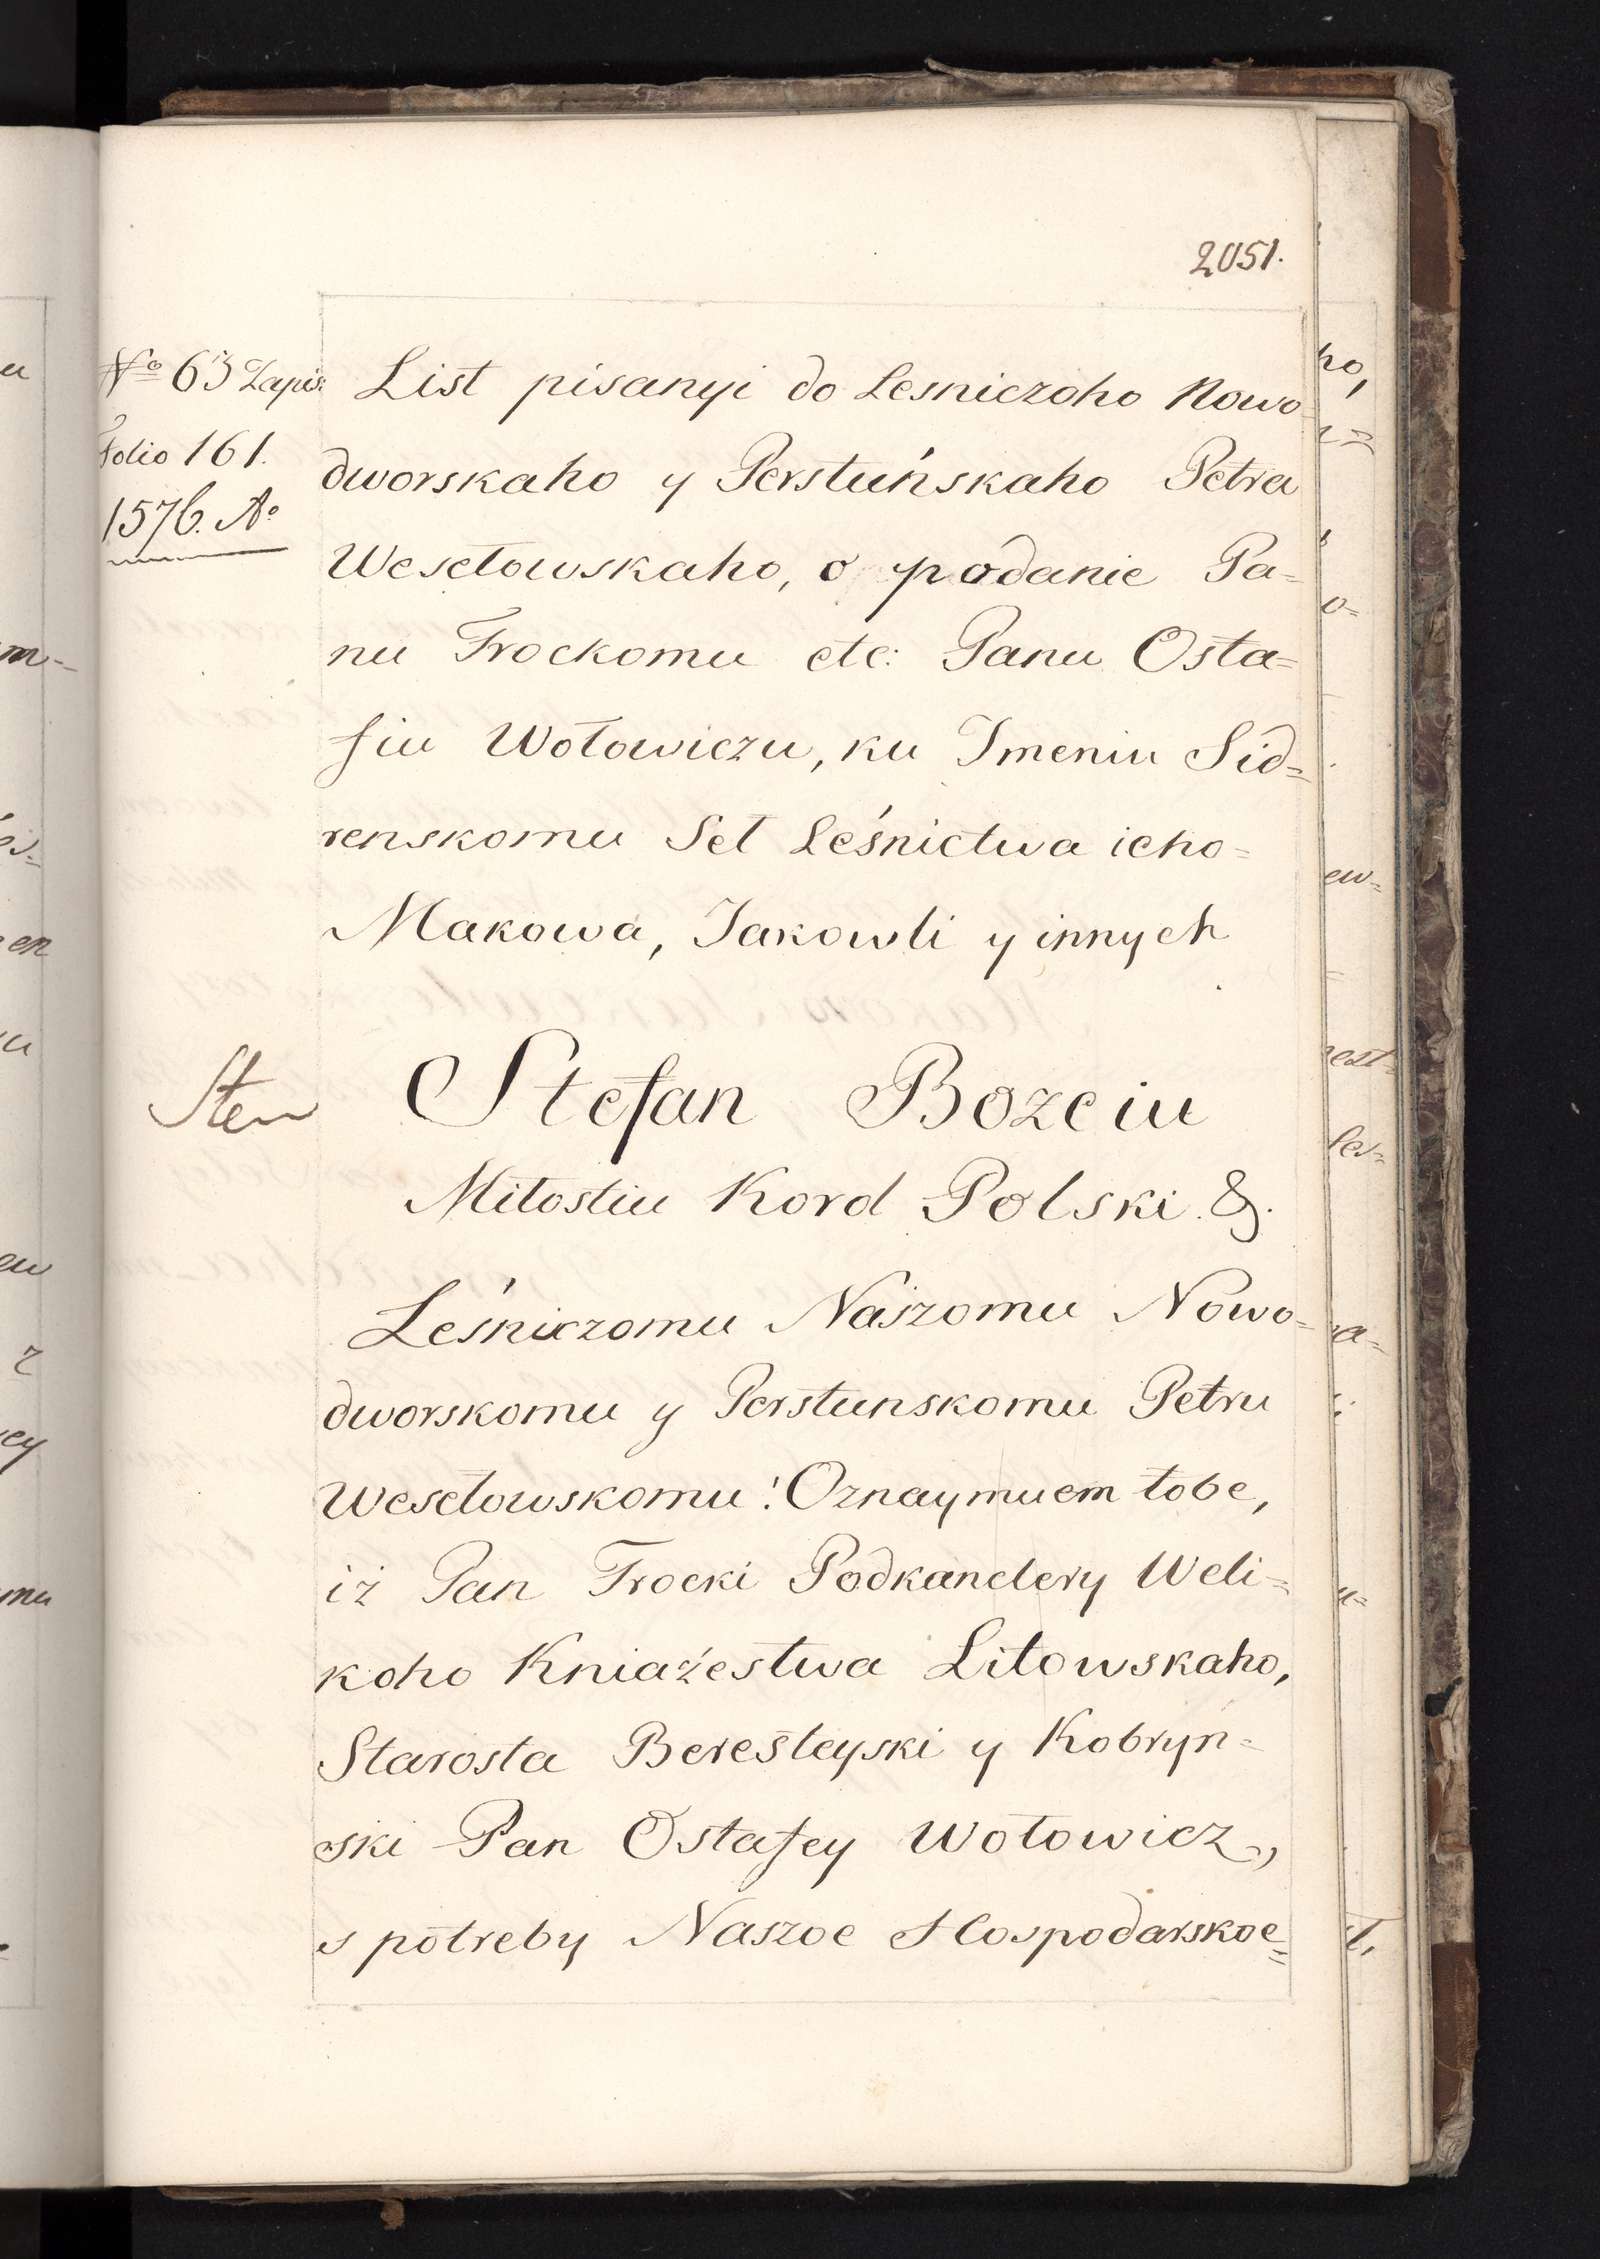 2051.
No 63 Zapis:
folio 161.
1576. Ao
List pisanyi do Lesniczoho Nowo=
dworskaho y Perstuńskaho Petra
Wesełowskaho, o podanie Pa=
nu Trockomu etc: Panu Osta=
fiu Wołowiczu, ku Imeniu Sid=
renskomu Seł Leśnictwa icho=
Makowa, Jakowli y innych
Sten
Stefan Bozeiu
Miłostiu Korol Polski &.
Leśniczomu Naszomu Nowo=
dworskomu y Perstunskomu Petru
Wesełowskomu! Oznaymuem tobe,
iż Pan Trocki Podkanclery Weli=
koho Kniażestwa Litowskaho,
Starosta Beresteyski y Kobryn=
ski Pan Ostafey Wołowicz,
s potreby Naszoe Hospodarskoe=